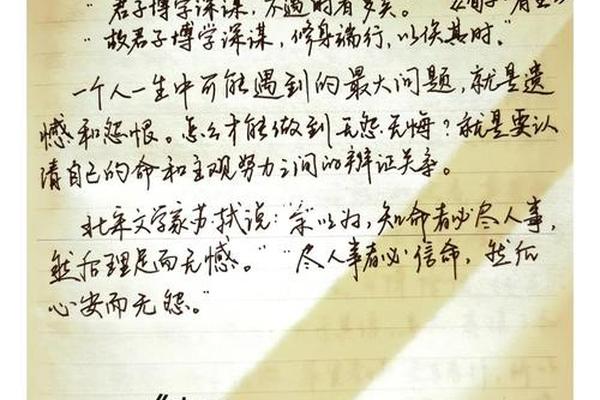 "君子博学深谋,不遇时者多矣。"
"故君子博学深谋,修身端行,以俟其时。"
一个人一生中可能遇到的最大问题,就是遗
憾和怨恨。怎么才能做到无怨无悔?就是要认
清自己的命和主观努力之间的辩证关系。
北宋文学家苏轼说:"余以为,知命者必尽人事,
然后理足而无憾。" "尽人事者必信命,然后
心安而无怨。"